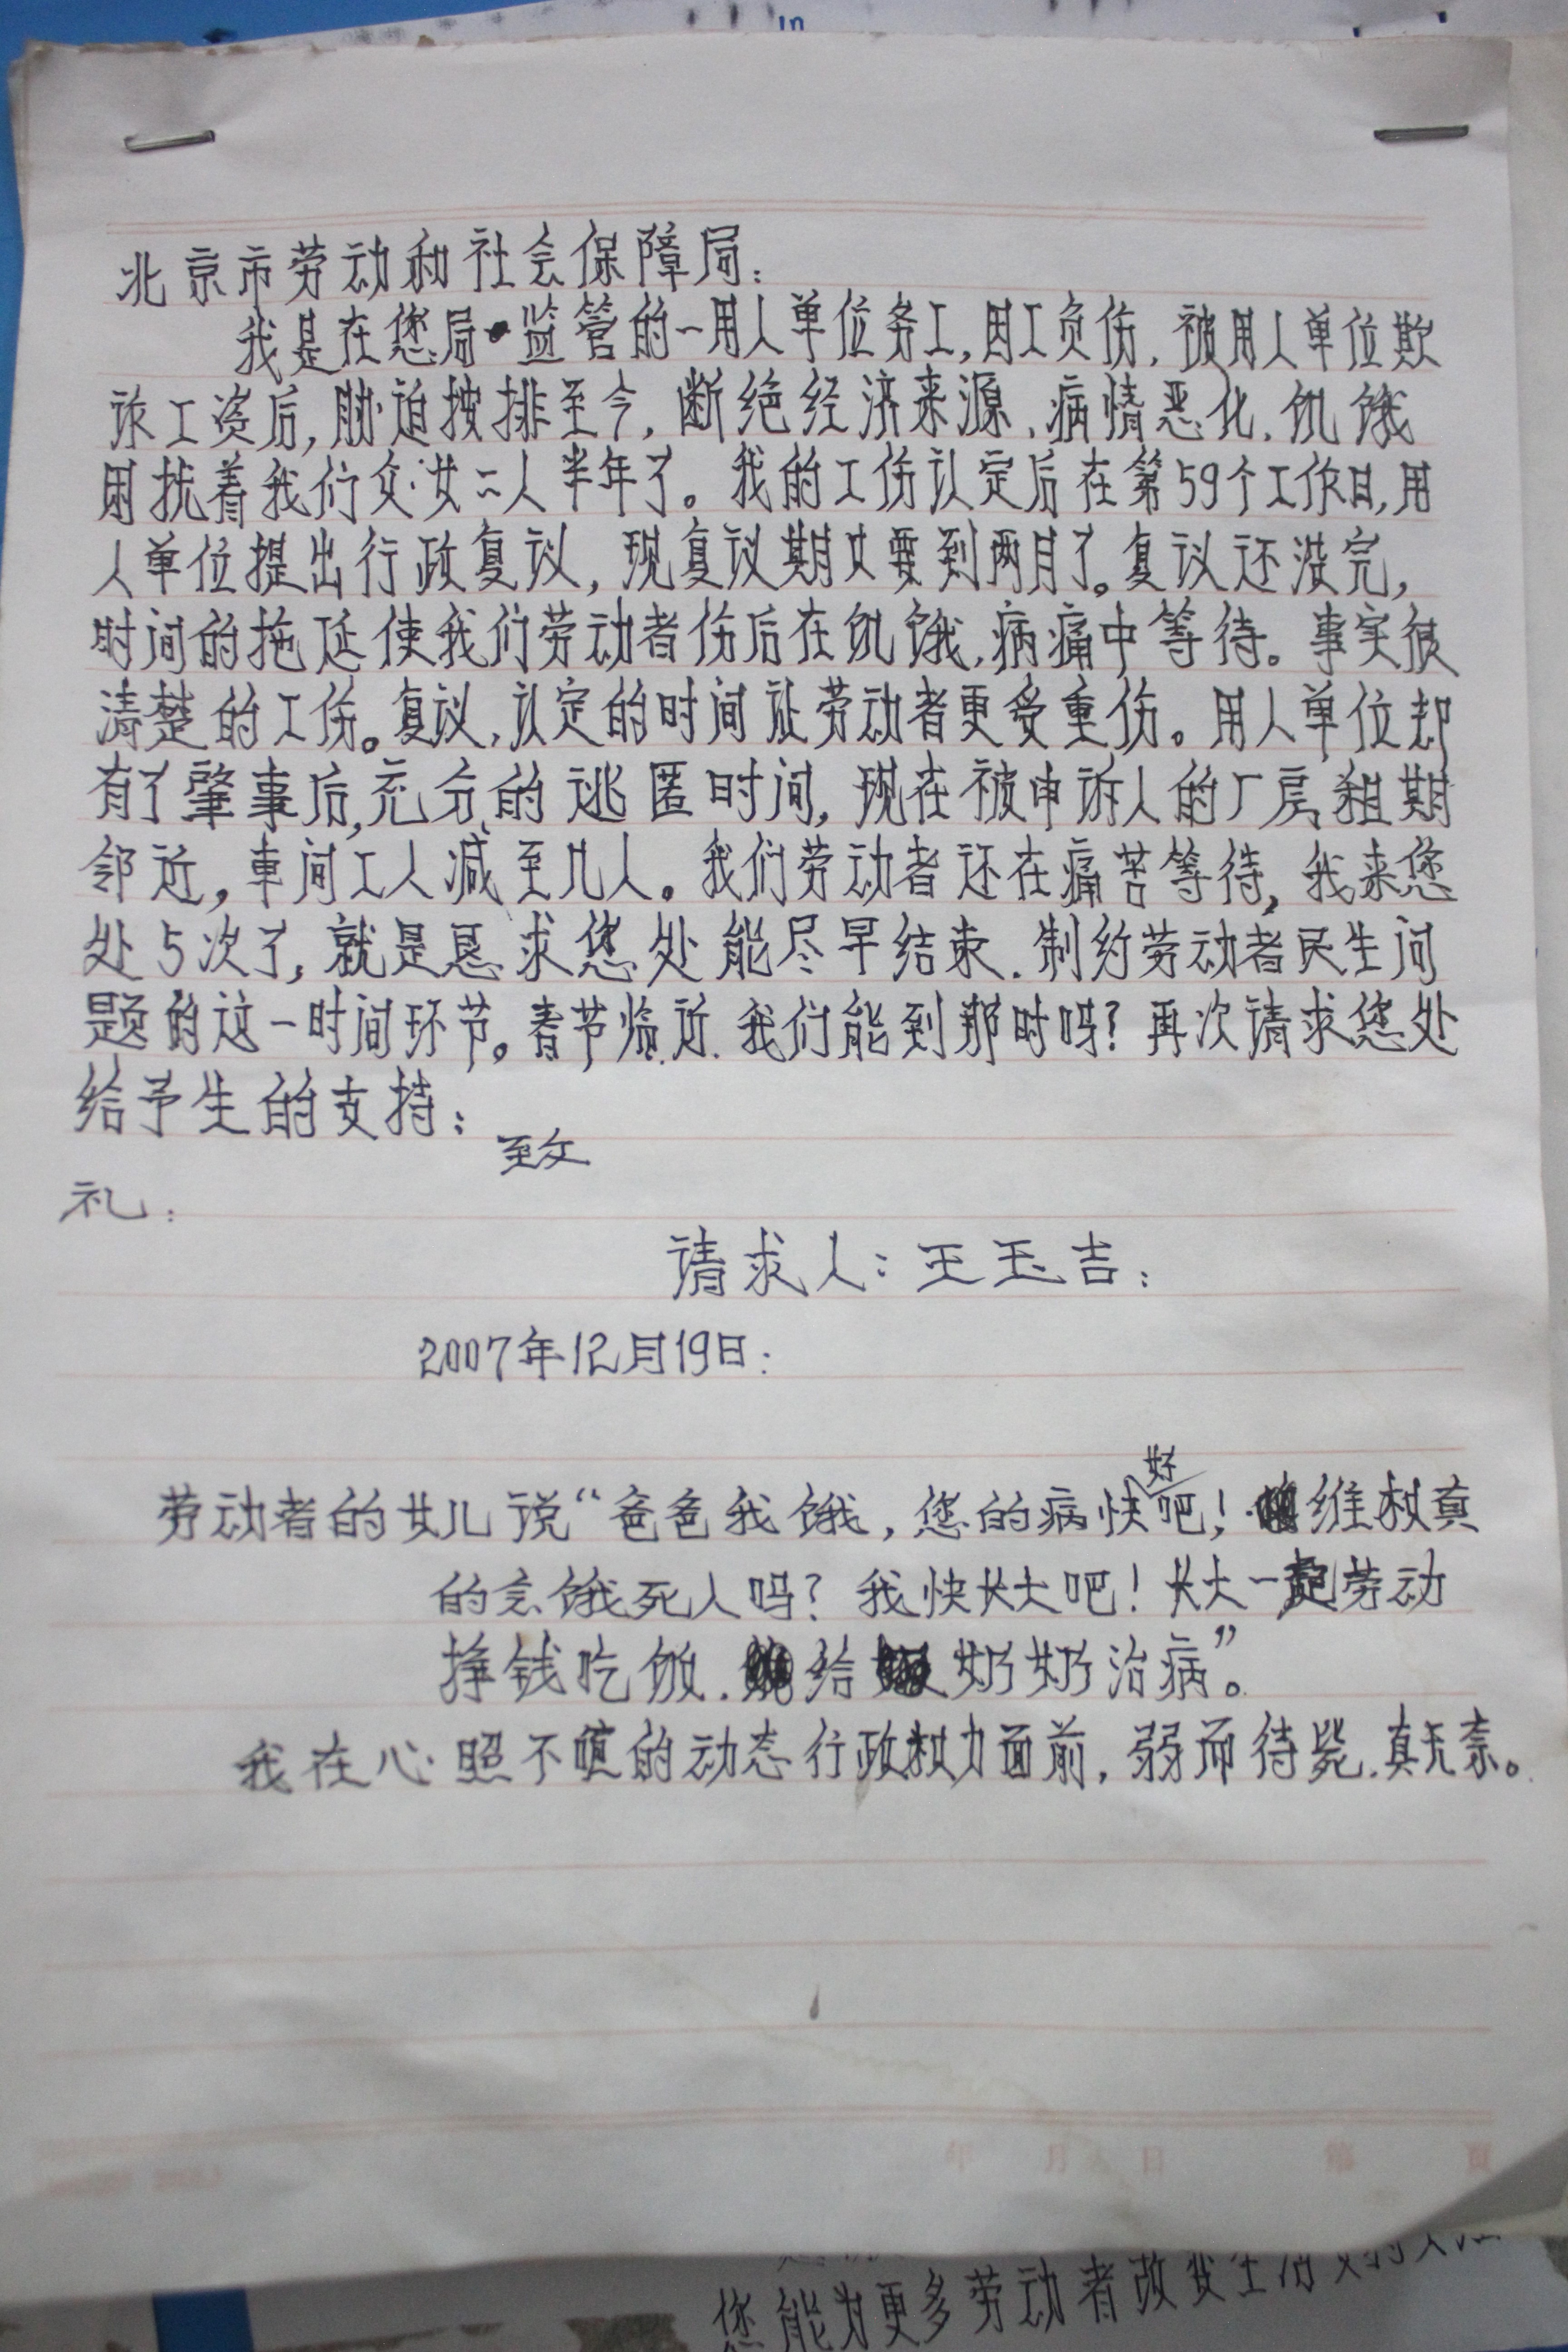 北京市劳动和社会保障局：
我是在您局监管的一用人单位务工，因工负伤，被用人单位欺
诈工资后，胁迫按排至今，断绝经济来源、病情恶化、饥饿
困扰着我们父女二人半年了。我的工伤认定后在第59个工作日，用
人单位提出行政复议，现复议期又要到两月了。复议还没完，
时间的拖延使我们劳动者伤后在饥饿、病痛中等待。事实很
清楚的工伤。复议、认定的时间让劳动者更受重伤。用人单位却
有了肇事后，充分的逃匿时间，现在被申诉人的厂房租期
邻近，车间工人减至几人。我们劳动者还在痛苦等待，我来您
处5次了，就是恳求您处能尽早结束、制约劳动者民生问
题的这一时间环节。春节临近、我们能到那时吗？再次请求您处
给予生的支持：
至文
礼：
请求人：王玉吉：
2007年12月19日：
劳动者的女儿说“爸爸我饿，您的病快好吧！维权真
的会饿死人吗？我快长大吧！长大一起劳动
挣钱吃饭、给奶奶治病”。
我在心照不宣的动态行政权力面前，弱而待毙、真无奈。
年 月 日 第 页
您能为更多劳动者改变生活